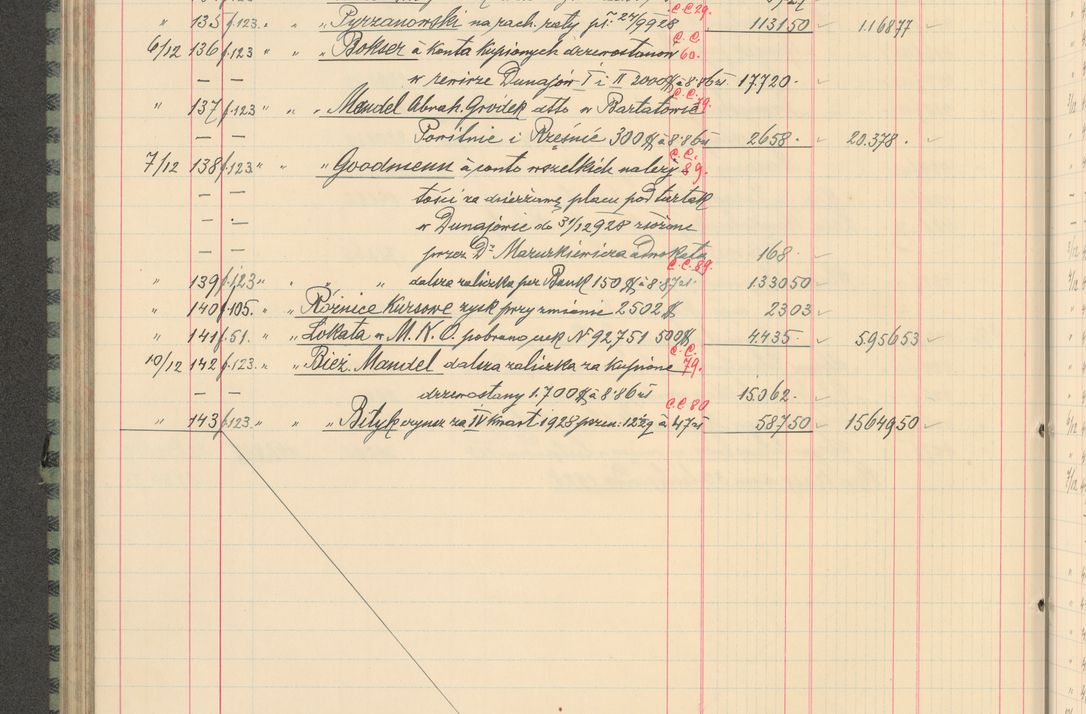 " 135 f.123 " " " Pyrzanowski na rach. raty pł: 24/6 928 C.C. 29. 1131 50 11.168 77
6/12 136 f.123 " " " Bokser a konta kupionych drzewostanów C.C. 60.
— — w rewirze Dunajów I i II 2000 $ à 8·86 zł 17.720 ·
" 137 f.123 " " " Mendel Abrah. Grodek dtto w Bartatowie C.C. 79.
— — i Rzęśnie 300 $ à 8·86 zł 2658 · 20.378 ·
7/12 138 f.123 " " " Goodmenn à conto wszelkich należy C.C. 89.
— — tości za dzierżawę placu pod tartak
— — w Dunajowie do 31/12 928 złożone
— — przez Dr Mazurkiewicza adwokata 168 ·
" 139 f.123 " " " " dalsza zaliczka per Bank 150 $ à 8·87 zł C.C. 89. 1330 50
" 140 f.105. " Różnice Kursowe zysk przy zmianie 2502 $ 23 03
" 141 f.51. " Lokata w M.K.O. pobrano czek № 92751 500 $ 4.435 · 5.956 53
10/12 142 f.123. " " " Bież. Mandel dalsza zaliczka za kupione C.C. 79.
— — drzewostany 1.700 $ à 8·86 zł 15.062 ·
" 143 f.123 " " " Bityk czynsz za IV kwart 1928 pszen: 12½ q à 47 zł C.C. 80 587 50 15649 50